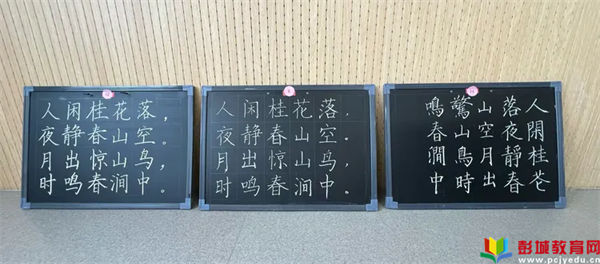 人闲桂花落，
夜静春山空。
月出惊山鸟，
时鸣春涧中。
人闲桂花落，
夜静春山空。
月出惊山鸟，
时鸣春涧中。
人閑桂花
落夜靜春
山空月出
驚山鳥時
鳴春澗中
彭城教育网
www.pcjyedu.cn